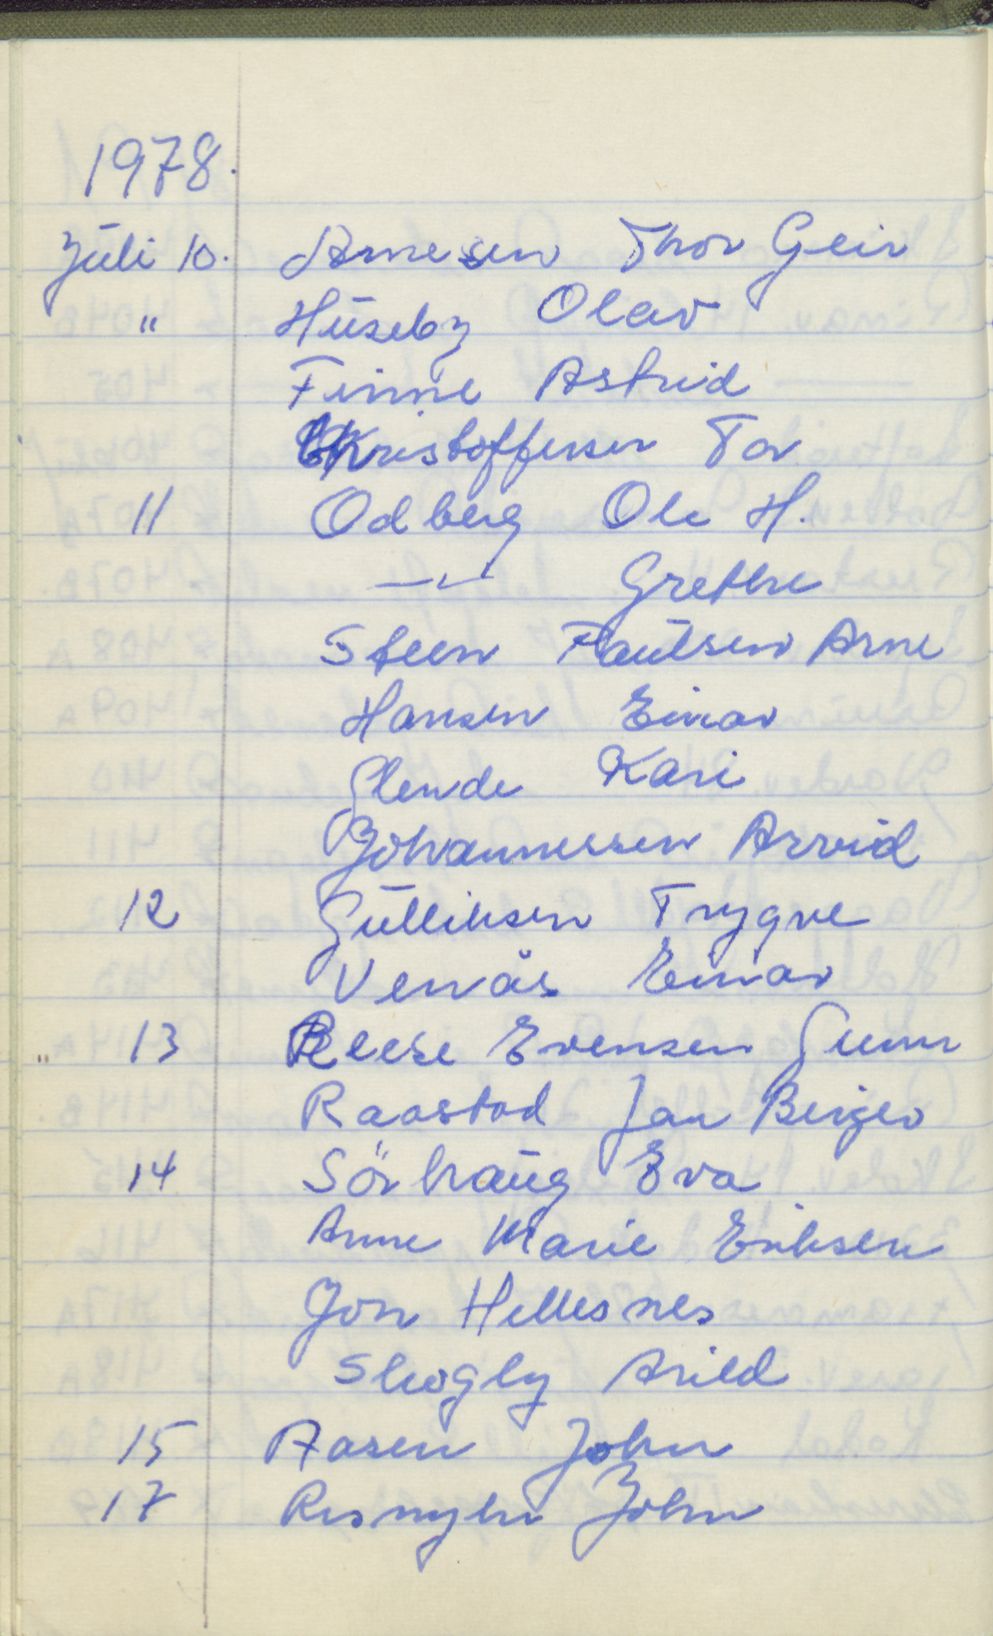 1978.
Juli 10. Arnesen Thor Geir
" Huseby Olav
Finne Astrid
Kristoffersen Tor
11 Odberg Ole H.
—"— Grethe
Steen Paulsen Arne
Hansen Einar
Glende Kari
Johannessen Arvid
12 Gulliksen Trygve
Venås Einar
" 13 Reese Evensen Gunn
Raastad Jan Birger
14 Sörhaug Eva
Anne Marie Eriksen
Jon Hellesnes
Skogly Arild
15 Aasen John
17 John